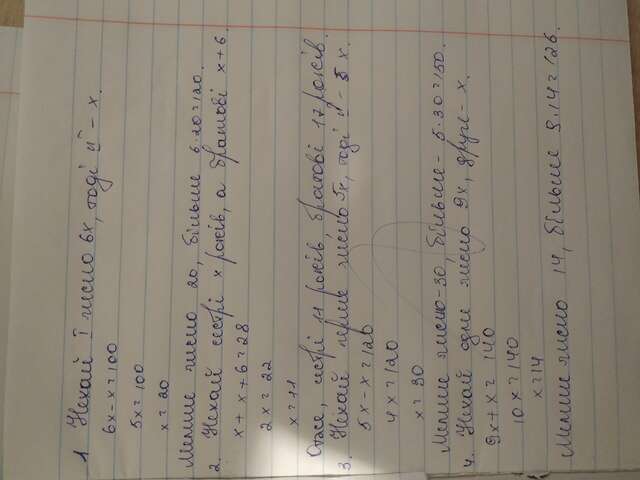 1 Нехай I число 6x, тоді II – x.
6x-x=100
5x=100
x=20
Менше число 20, більше 6·20=120.
2. Нехай сестрі x років, а братові x+6.
x+x+6=28
2x=22
x=11
Отже, сестрі 11 років братові 17 років.
3. Нехай перше число 5x, тоді II - x.
5x-x=120
4x=120
x=30
Менше число-30, більше- 5·30=150.
4. Нехай одне число 9x, друге - x.
9x+x=140
10x=140
x=14
Менше число 14, більше 9·14=126.